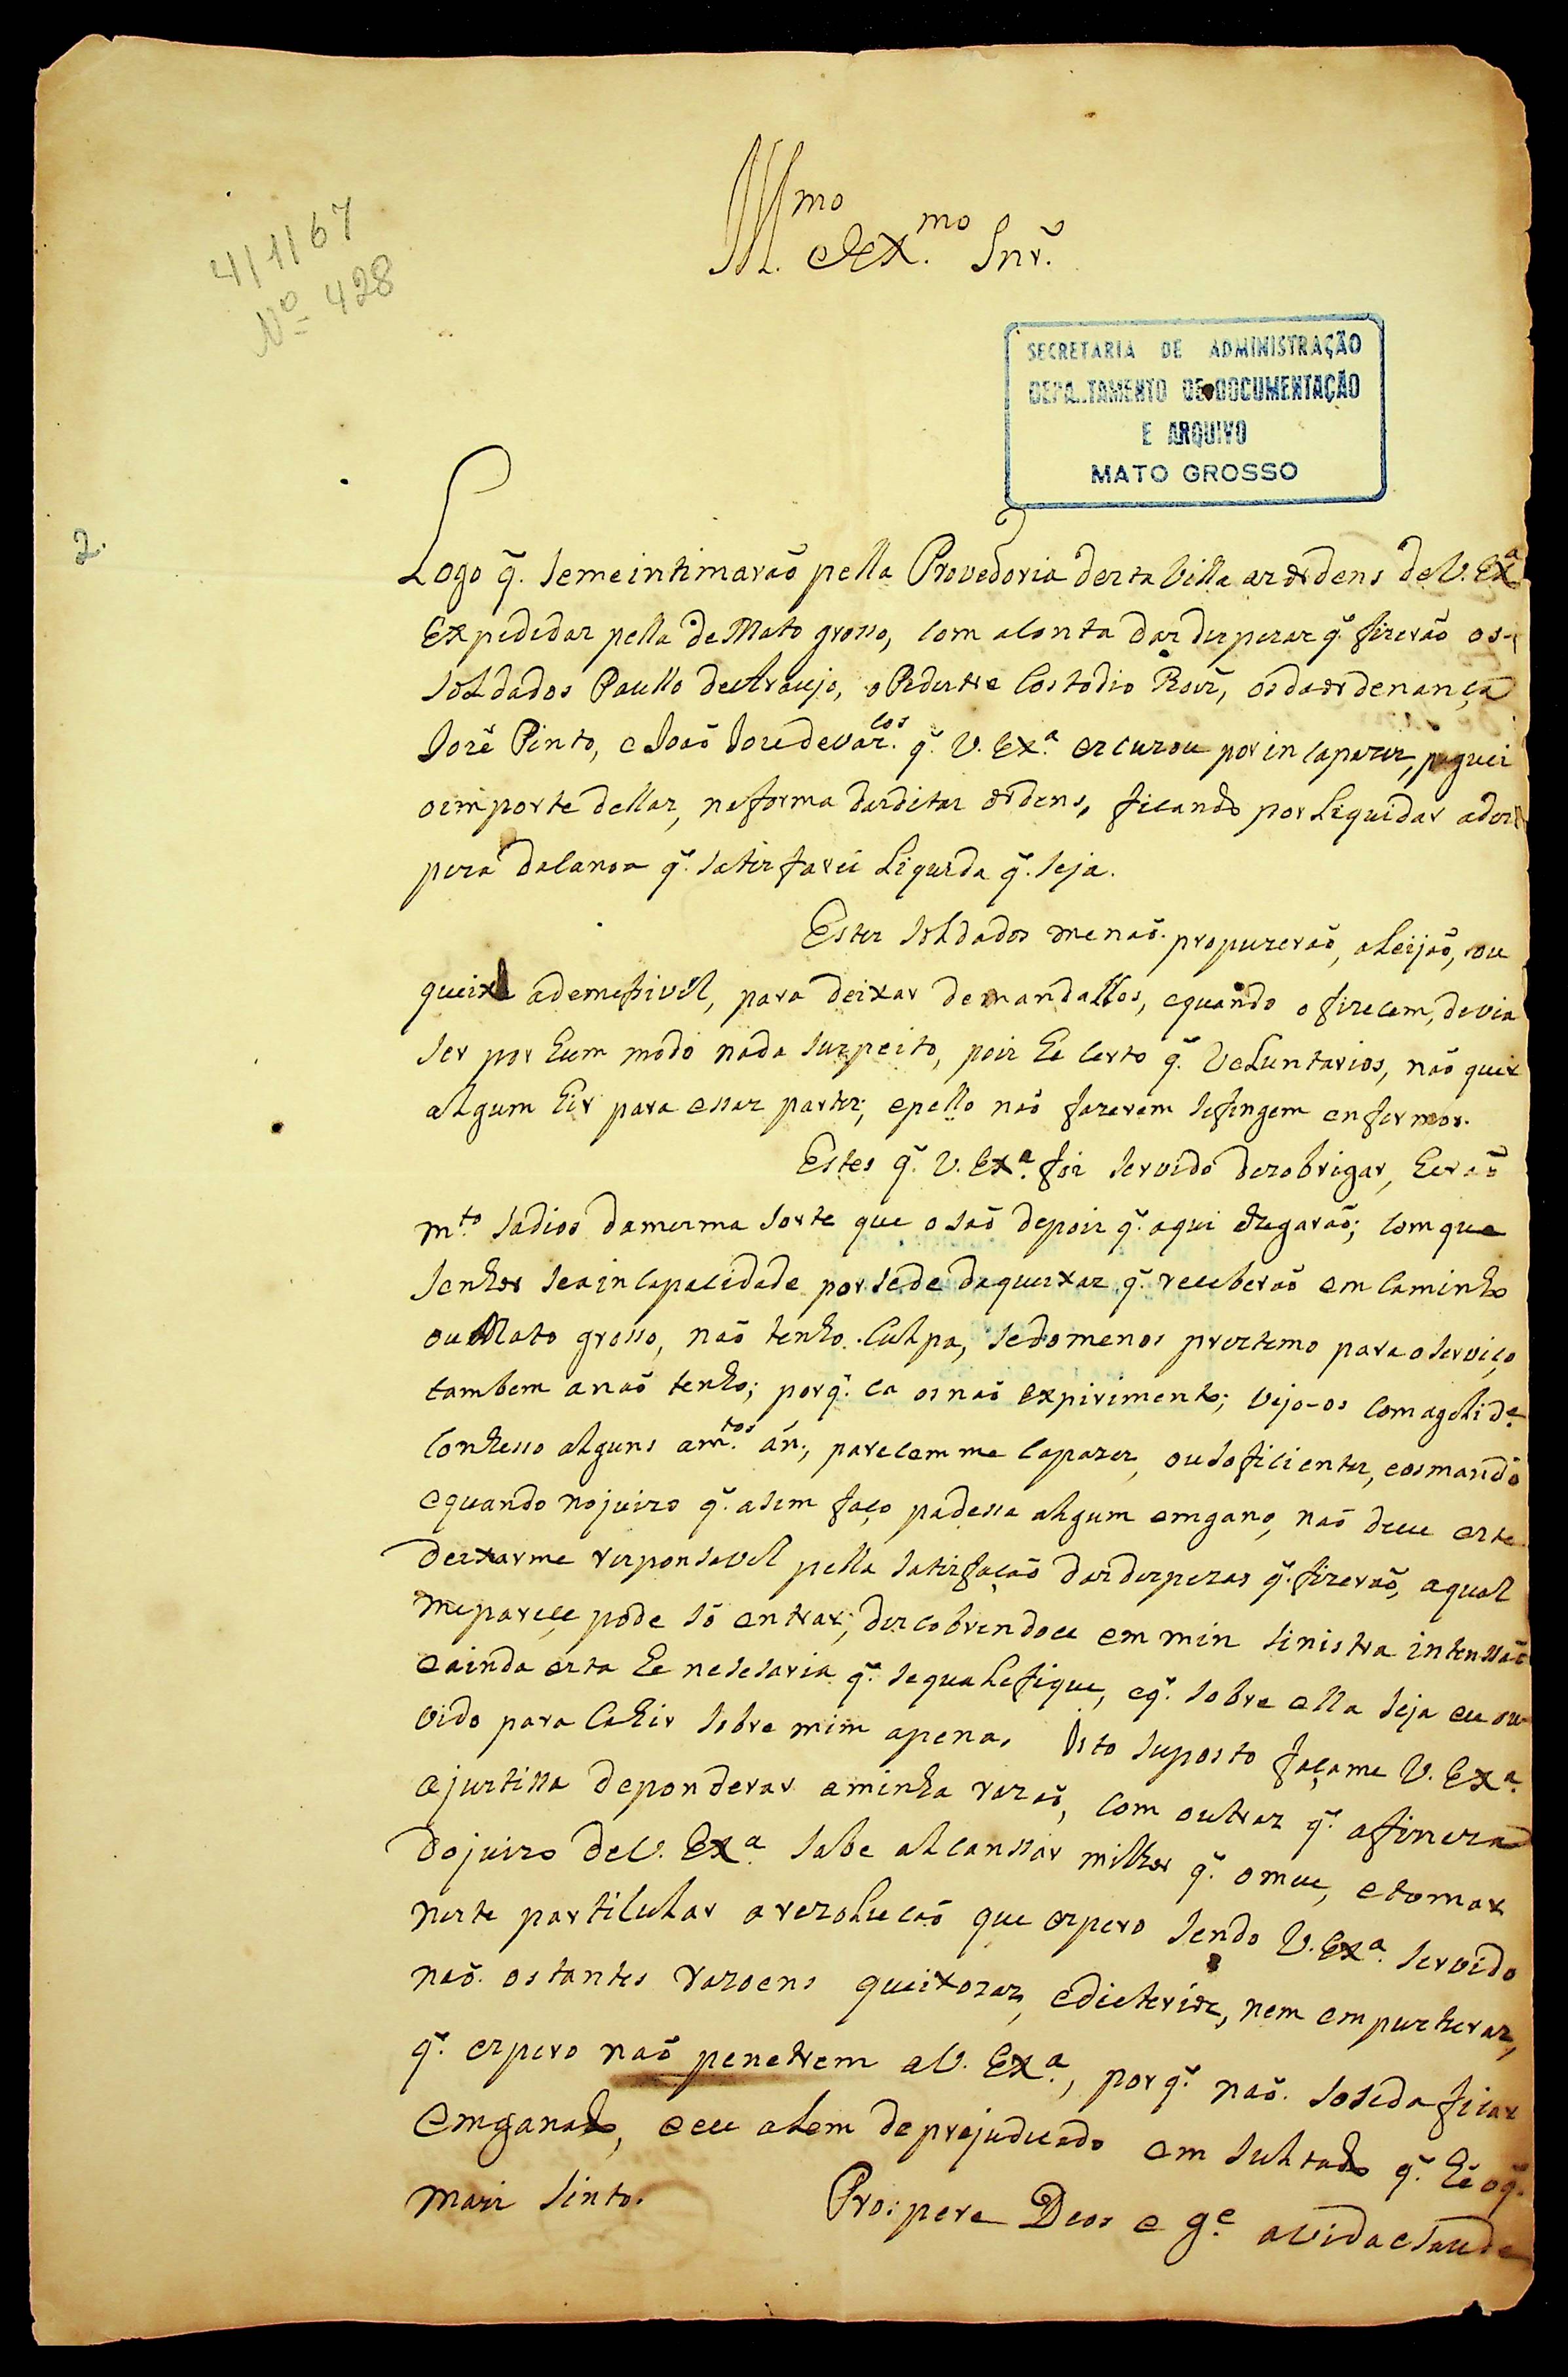 411167
Nº 428
Illmo. eExmo. Snr.
SECRETARIA DE ADMINISTRAÇÃO
DEPA..TAMENTO DE DOCUMENTAÇÃO
E ARQUIVO
MATO GROSSO
2.
Logo q̃. semeintimaraõ pella Provedoria desta Villa as ordens deV. Exª
Expedidas pella deMato grosso, com aconta das despezas q̃. fizeraõ os
soldados Paullo deAraujo, oPedestre Costodio Roiz̃, osdaordenança
Jozê Pinto, eJoaõ Joze devas.cos q̃. V. Exª. escuzou por incapazes, paguei
oimporte dellas, naforma dasditas ordens, ficando por Liquidar ades
peza dacanoa q̃. satisfarei Liquida q̃. seja.
Estes soldados menaõ. propuzeraõ, aleijaõ, ou
queixa ademessivél, para deixar demandallos, equando ofizecem, devia
ser por hum modo nada suspeito, pois he certo q̃. Voluntarios, naõ quer
algum hir para essas partes; epello naõ fazerem sefingem enfermos.
Estes q̃. V. Exª. foi servido dezobrigar, heraõ
mto. sadios damesma sorte que osaõ depois q̃. aqui chegaraõ; comque
senhor seaincapacidade porsede daqueixas q̃. receberaõ em caminho
ouMato grosso, naõ tenho. culpa, sedomenos prestemo para oserviço
tambem anaõ tenho; porq̃. ca osnaõ expirimento; vejo-os comagelide.
conhesso alguns am.tos án., parecemme capazes, ousoficientes, eosmando
equando nojuizo q̃. asim faço padessa algum emgano, naõ deve este
deixarme responsavel pella satisfaçaõ dasdespezas q̃. fizeraõ, aqual
meparece, pode só entrar; descobrindoce em min sinistra intenssaõ
eainda esta he nesesaria q̃. sequalefique, eq̃. sobre ella seja eu ou
vido para cahir sobre mim apena. Isto suposto façame V. Exª.
ajustissa deponderar aminha razaõ, com outras q̃. afineza
dojuizo deV. Exª sabe alcanssar milhor q̃. omeu, etomar
neste particular arezoluçaõ que espero sendo V. Exª. servido
naõ. ostantes razoens queixozas, edicterios, nem empusturas,
q̃. espero naõ penetrem aV. Exª., porq̃. naõ. soseda ficar
emganado, eeu alem deprejudicado emsultado q̃. hé oq̃.
mais sinto. Prospere Deos e ge. avidaesaude